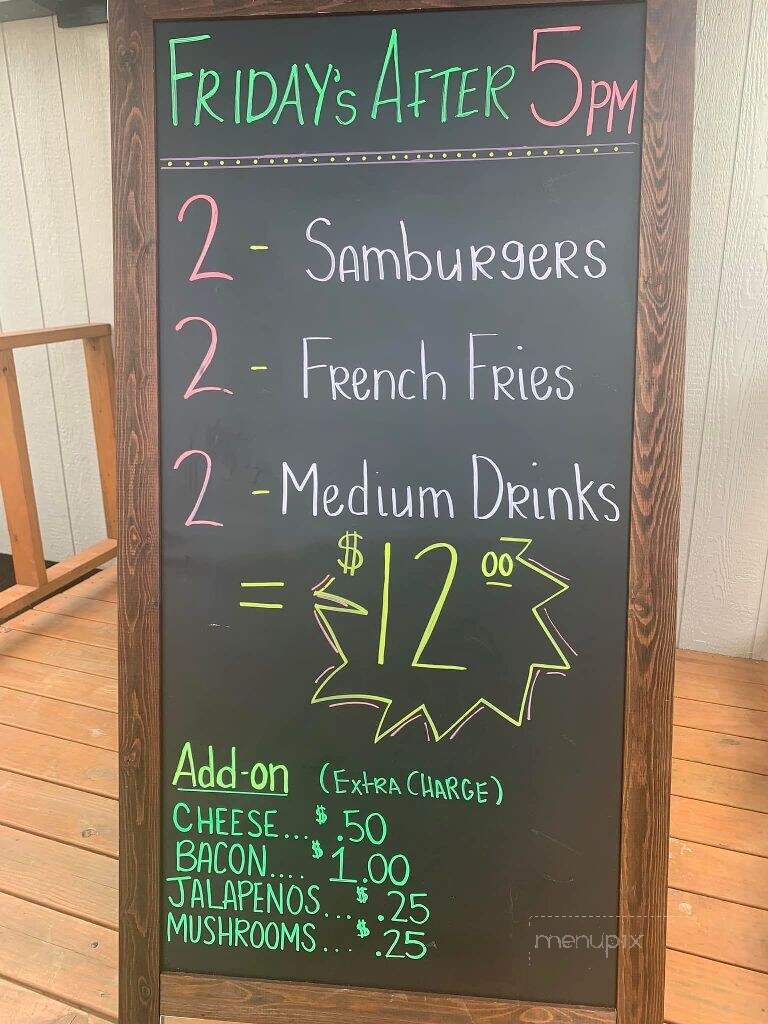 FRIDAY's AFTER 5PM
2 - SAMBURGERS
2 - FRENCH FRIES
2 - MEDIUM DRINKS
= $12.00
Add-on (EXTRA CHARGE)
CHEESE... $.50
BACON.... $1.00
JALAPENOS... $.25
MUSHROOMS... $.25
menupix